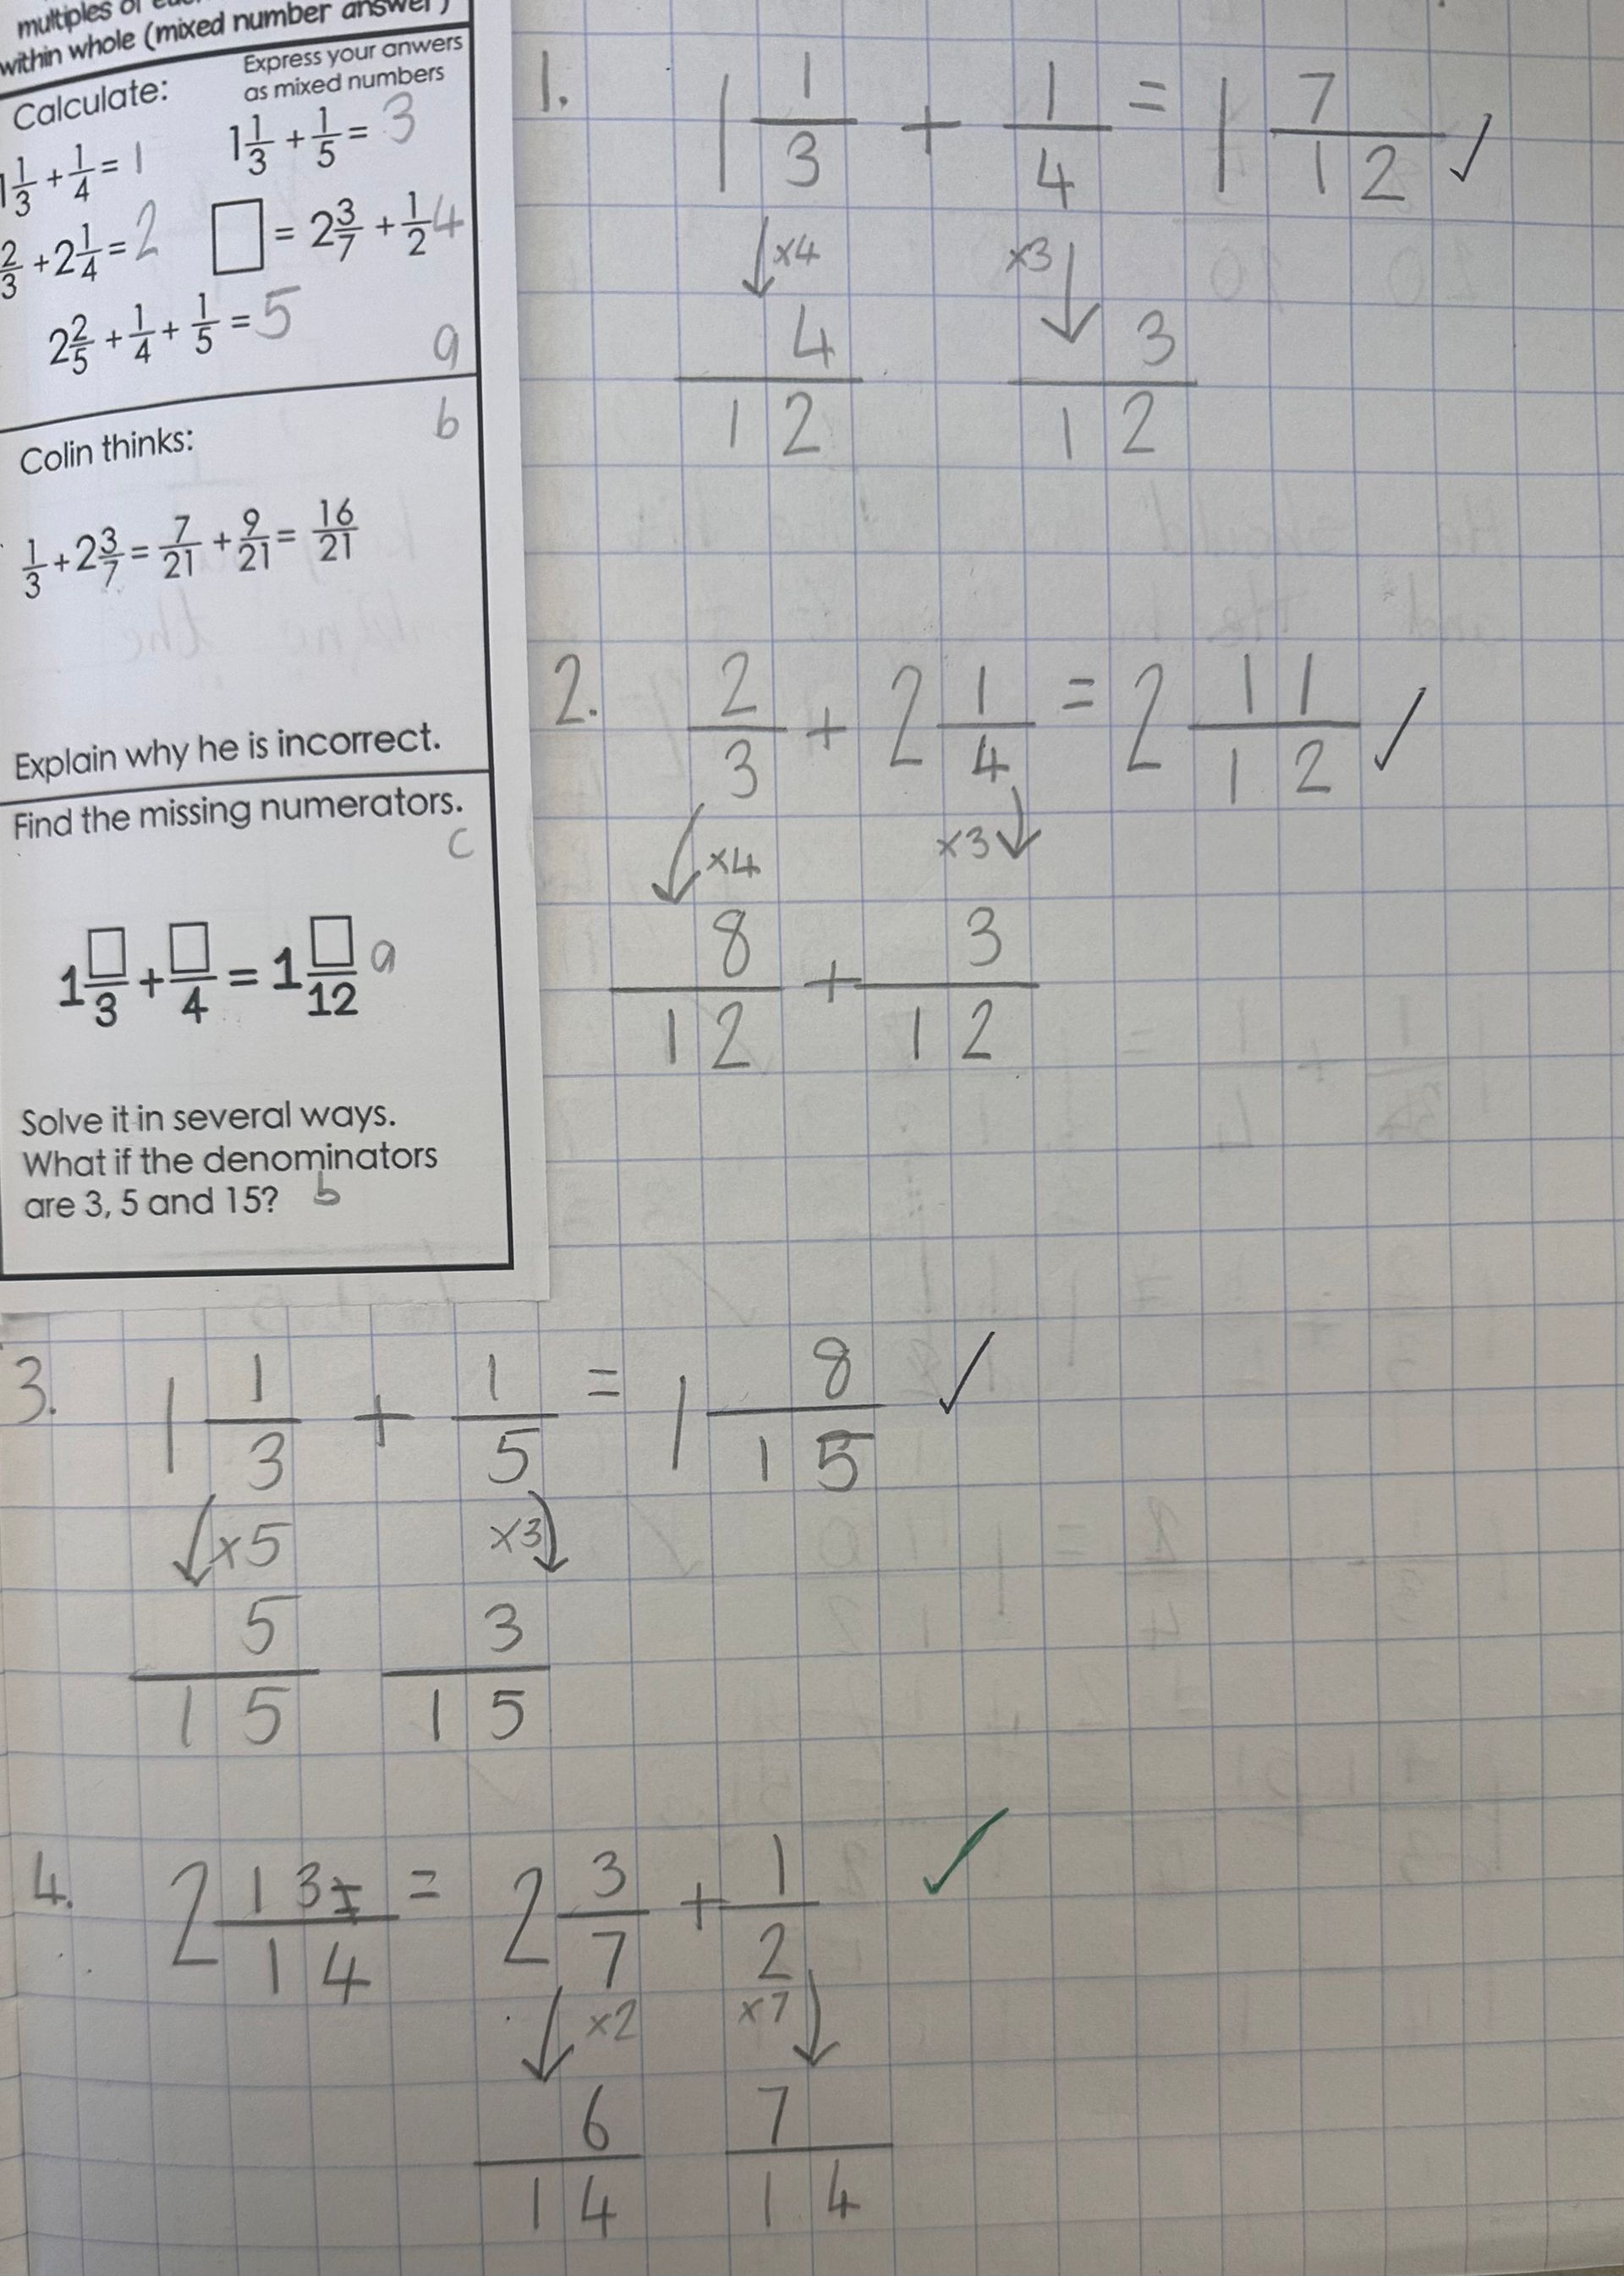 multiples of
within whole (mixed number answer)
Calculate:
Express your anwers
as mixed numbers
1 1/3 + 1/4 = 1
1 1/3 + 1/5 = 3
2/3 + 2 1/4 = 2
□ = 2 3/7 + 1/2 4
2 2/5 + 1/4 + 1/5 = 5
a
b
Colin thinks:
1/3 + 2 3/7 = 7/21 + 9/21 = 16/21
Explain why he is incorrect.
Find the missing numerators.
c
1 □/3 + □/4 = 1 □/12 a
Solve it in several ways.
What if the denominators
are 3, 5 and 15? b
1. 1 1/3 + 1/4 = 1 7/12 ✓
×4 ×3
4/12 3/12
2. 2/3 + 2 1/4 = 2 11/12 ✓
×4 ×3
8/12 + 3/12
3. 1 1/3 + 1/5 = 1 8/15 ✓
×5 ×3
5/15 3/15
4. 2 13/14 = 2 3/7 + 1/2 ✓
×2 ×7
6/14 7/14